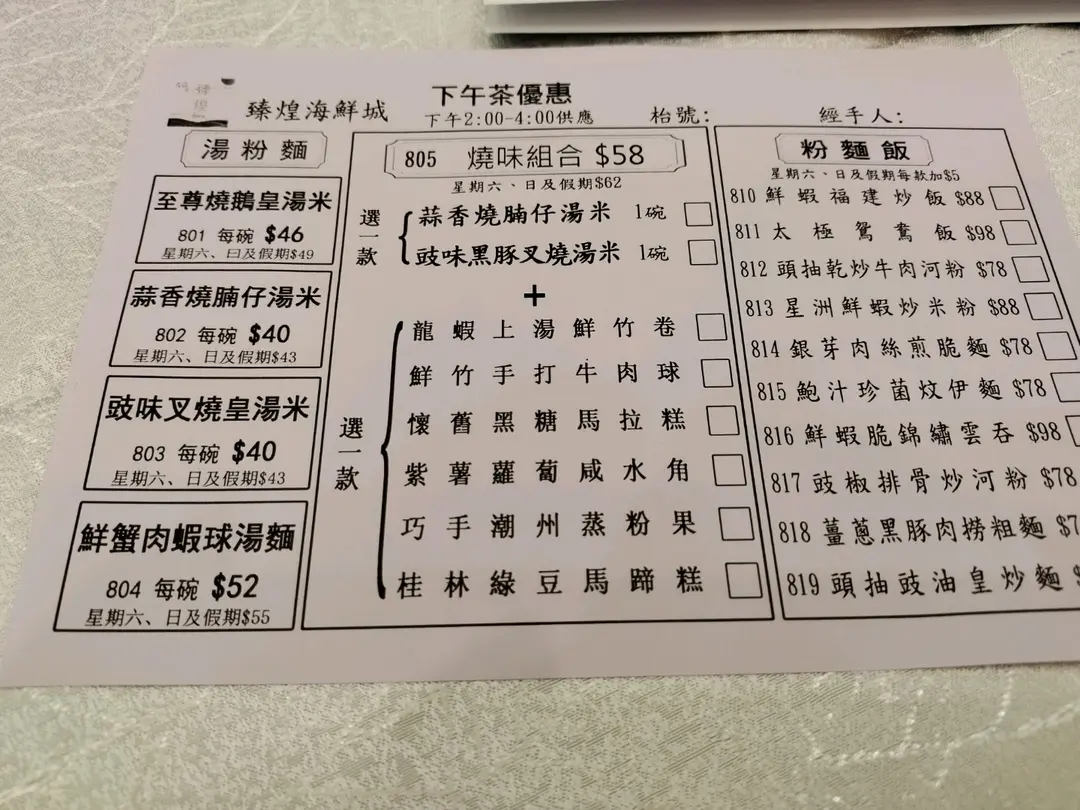 臻煌海鮮城
下午茶優惠
下午2:00-4:00供應
枱號:
經手人:
湯粉麵
至尊燒鵝皇湯米
801 每碗 $46
星期六、日及假期$49
蒜香燒腩仔湯米
802 每碗 $40
星期六、日及假期$43
豉味叉燒皇湯米
803 每碗 $40
星期六、日及假期$43
鮮蟹肉蝦球湯麵
804 每碗 $52
星期六、日及假期$55
805 燒味組合 $58
星期六、日及假期$62
選一款
蒜香燒腩仔湯米 1碗
豉味黑豚叉燒湯米 1碗
+
選一款
龍蝦上湯鮮竹卷
鮮竹手打牛肉球
懷舊黑糖馬拉糕
紫薯蘿蔔咸水角
巧手潮州蒸粉果
桂林綠豆馬蹄糕
粉麵飯
星期六、日及假期每款加$5
810 鮮蝦福建炒飯 $88
811 太極鴛鴦飯 $98
812 頭抽乾炒牛肉河粉 $78
813 星洲鮮蝦炒米粉 $88
814 銀芽肉絲煎脆麵 $78
815 鮑汁珍菌炆伊麵 $78
816 鮮蝦脆錦繡雲吞 $98
817 豉椒排骨炒河粉 $78
818 薑蔥黑豚肉撈粗麵 $7
819 頭抽豉油皇炒麵 $